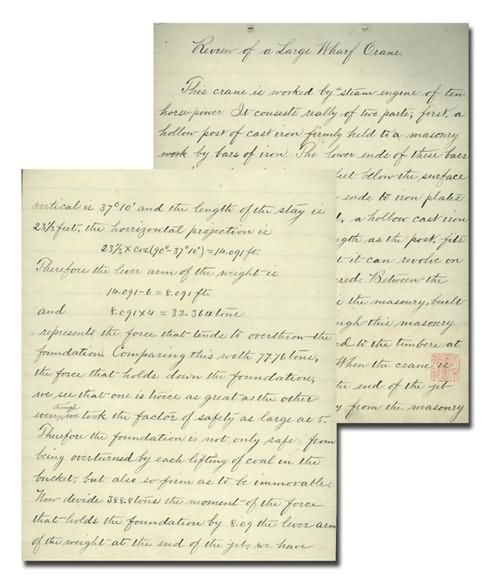 Review of a Large Wharf Crane.
This crane is worked by steam engine of ten
horse power. It consists really of two parts, first, a
hollow post of cast iron firmly held to a masonry
work by bars of iron. The lower ends of these bars
feet below the surface
ends to iron plates
, a hollow cast iron
gth as the post, fits
it can revolve on
red. Between the
the masonry, built
ugh this masonry
d to the timbers at
When the crane is
the end of the jib
from the masonry
vertical is 37°10' and the length of the stay is
23 1/3 feet, the horrizontal projection is
23 1/3 × cos(90°-37°10') = 14.091 ft.
Therefore the lever arm of the weight is
14.091-6 = 8.091 ft.
and 8.091×4 = 32.364 tons
represents the force that tends to overthrow the
foundation. Comparing this with 77.76 tons,
the force that holds down the foundation,
we see that one is twice as great as the other
even though we took the factor of safety as large as 5.
Therefore the foundation is not only safe from
being overturned by each lifting of coal in the
bucket, but also so firm as to be immovable.
Now divide 388.8 tons the moment of the force
that holds the foundation by 8.09 the lever arm
of the weight at the end of the jib, we have